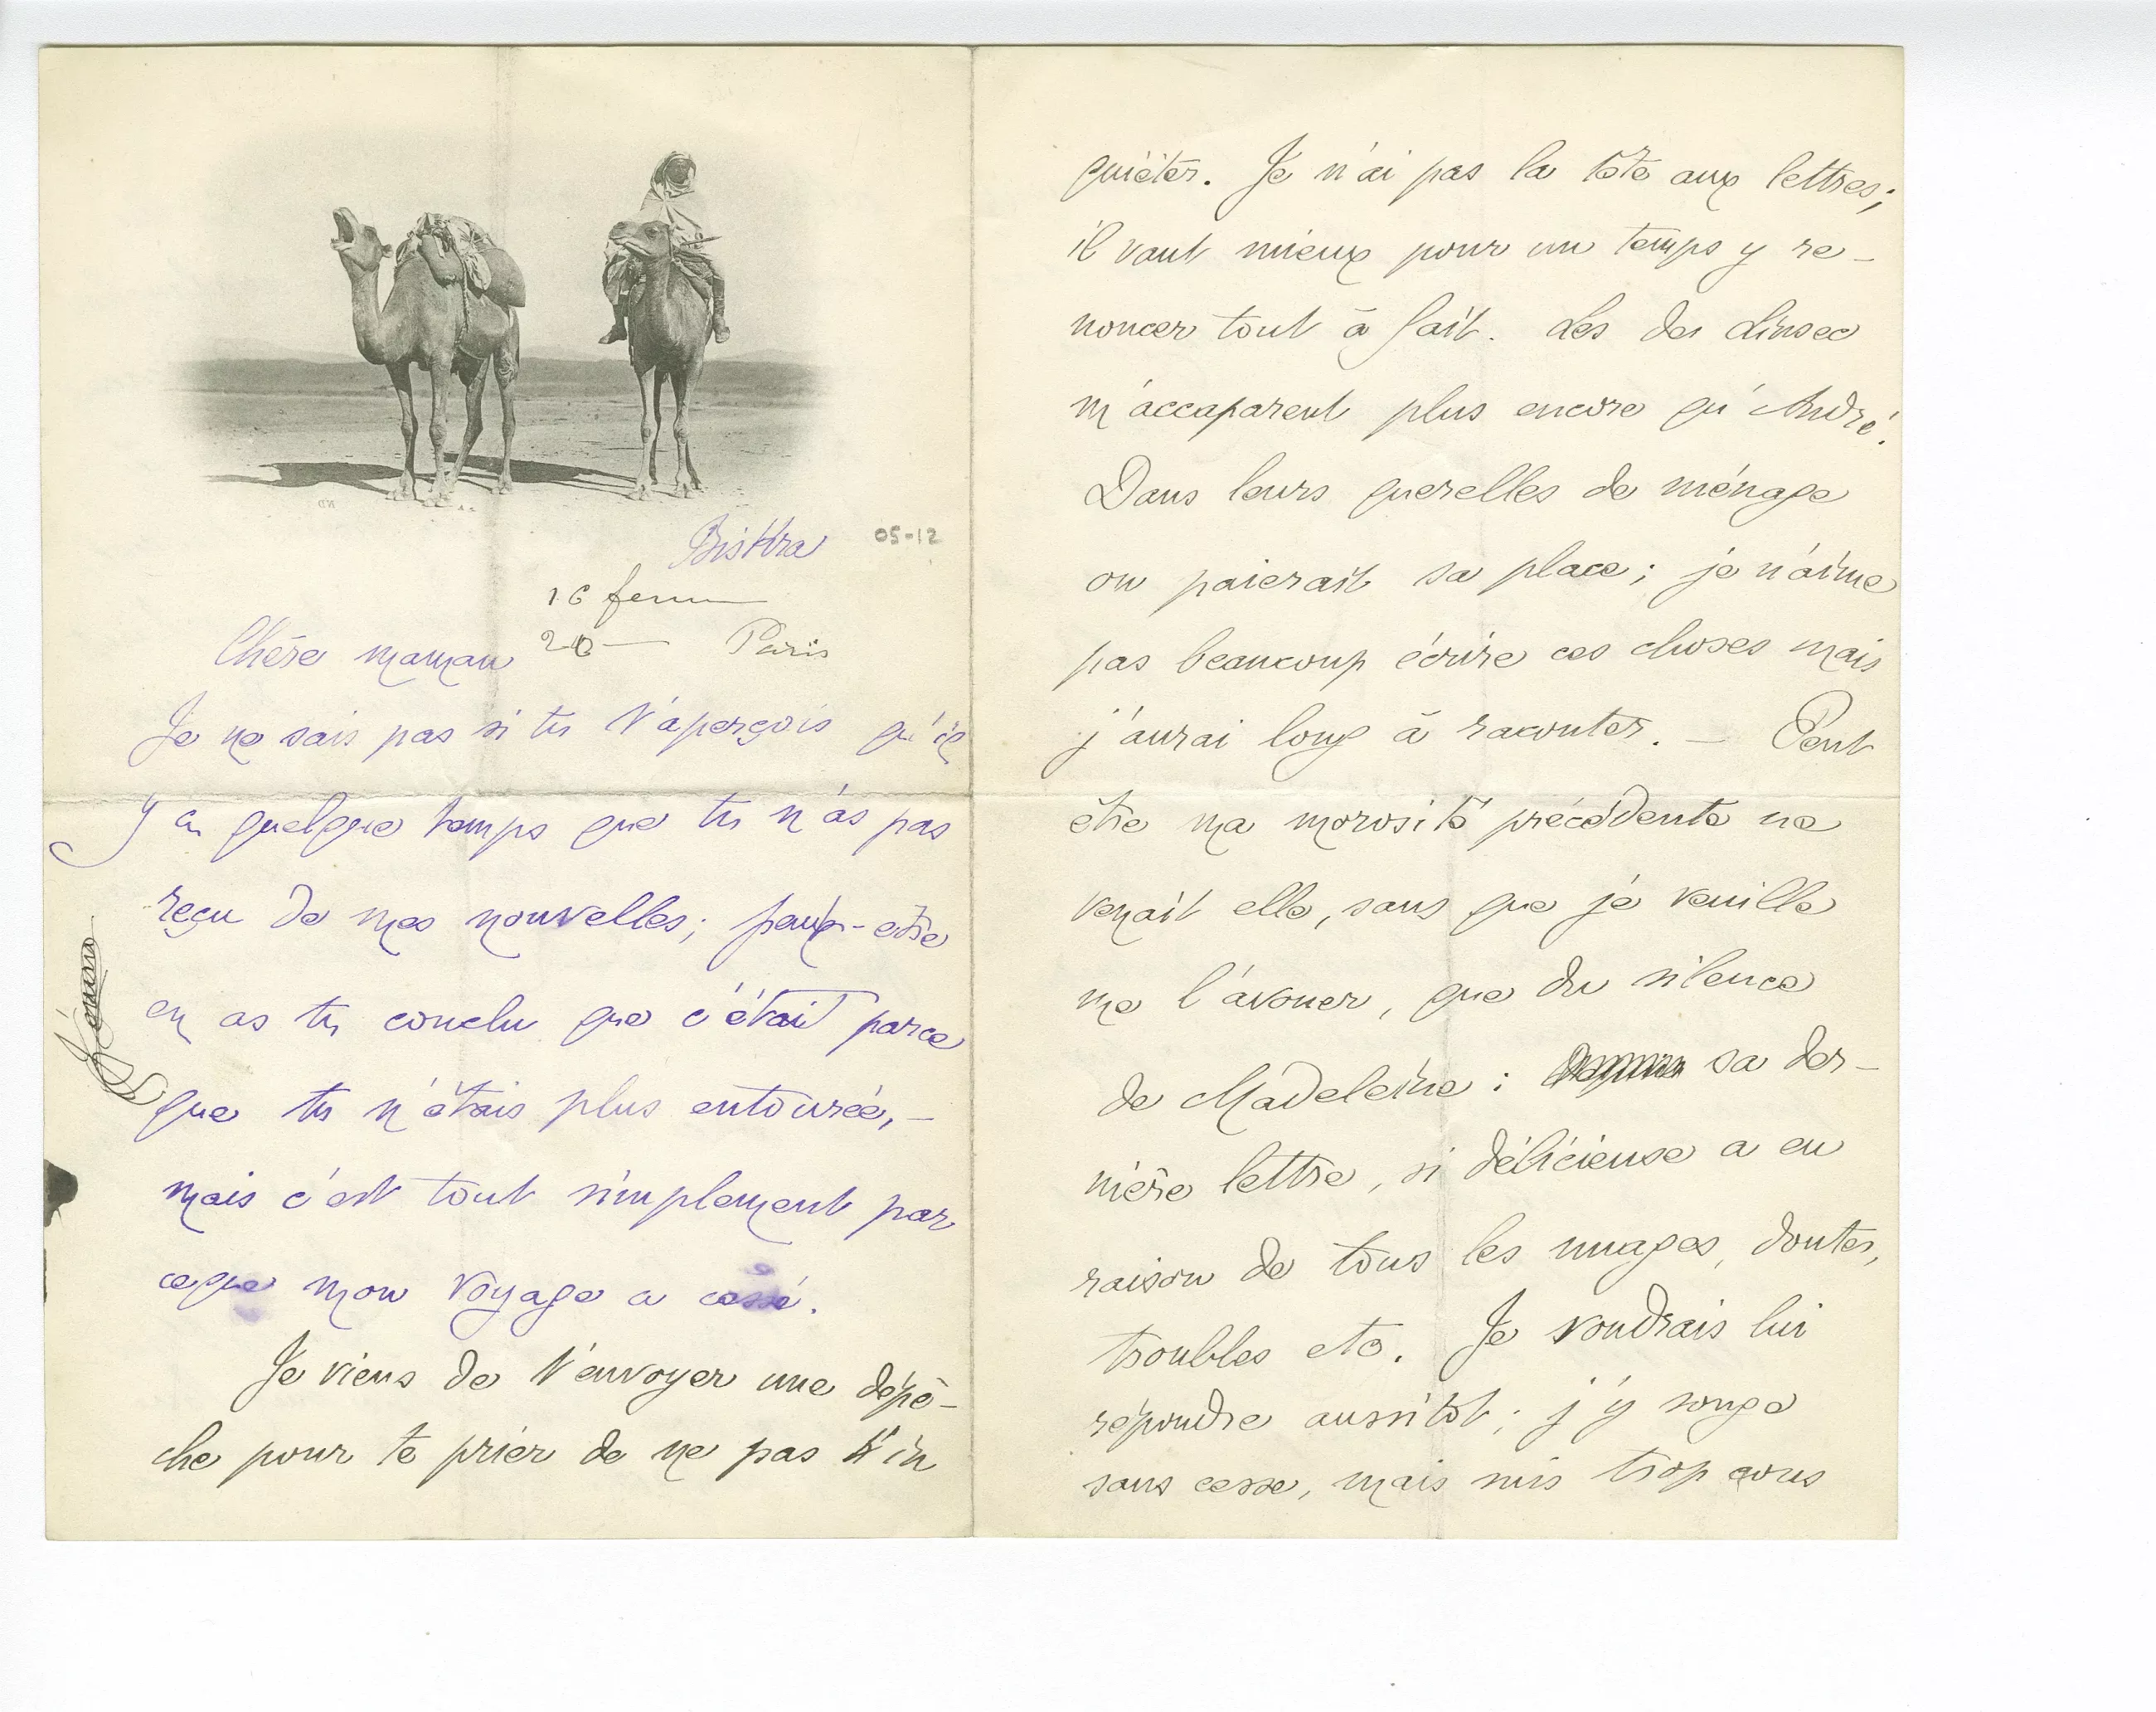 Biskra
05-12
16
20 — Paris
Chère maman
Je ne sais pas si tu t'aperçois qu'il
y a quelque temps que tu n'as pas
reçu de mes nouvelles; peut-etre
en as tu conclu que c'était parce
que tu n'étais plus entourée, —
mais c'est tout simplement par
ceque mon voyage a cessé.
Je viens de t'envoyer une dépê-
che pour te prier de ne pas t'in
quiéter. Je n'ai pas la tête aux lettres;
il vaut mieux pour un temps y re-
noncer tout à fait. Les de
m'accaparent plus encore qu'André.
Dans leurs querelles de ménage
on paierait sa place; je n'aime
pas beaucoup écrire ces choses mais
j'aurai long à raconter. — Peut
être ma morosité précédente ne
venait elle, sans que je veuille
me l'avouer, que du silence
de Madeleine: sa der-
nière lettre, si délicieuse a eu
raison de tous les nuages, doutes,
troubles etc. Je voudrais lui
répondre aussitôt; j'y songe
sans cesse, mais suis trop cons